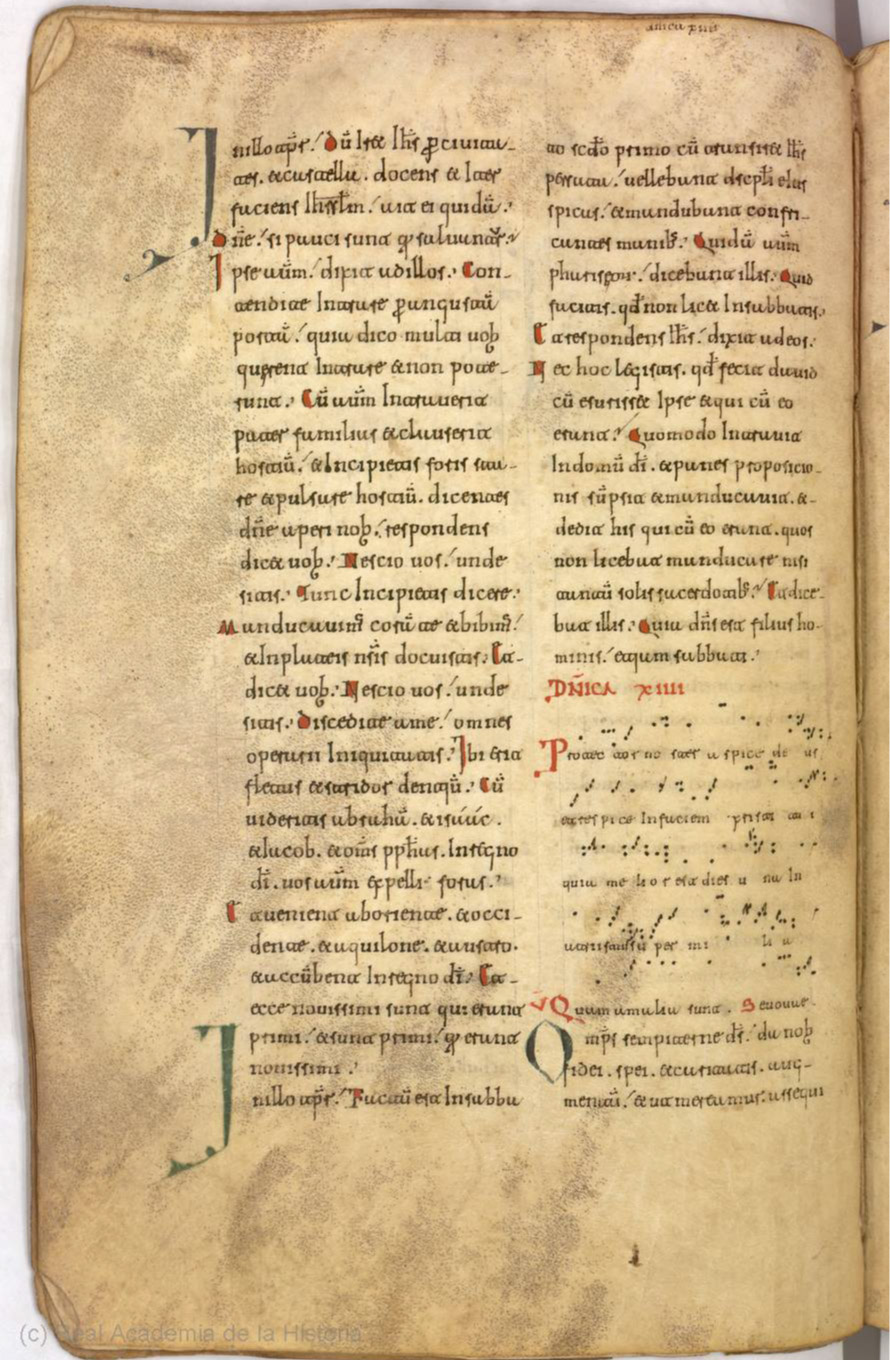 inica xiiii
In illo tp̄r. Dū iret ihs̄ ꝑ ciuita-
tes. & castella. docens & iter
faciens Ihrslm. ait ei quidā.
Dn̄e. si pauci sunt q saluantur.
Ipse aūm. dixit ad illos. Con-
tendite Intrare ꝑ angustā
portā. quia dico multi uob
querent Intrare & non pote-
runt. Cū aūm Intrauerit
pater familias & clauserit
hostiū. & Incipietis foris sta-
re & pulsare hostiū. dicentes
dn̄e aperi nob. respondens
dic& uob. Nescio uos. unde
sitis. Tunc Incipietis dicere.
Manducauim corā te & bibim.
& In plateis nr̄is docuisti. Et
dic& uob. Nescio uos. unde
sitis. Discedite a me. omnes
operarii Iniquitatis. Ibi erit
fletus & stridor dentiū. Cū
uideritis abrahā. & isáác.
& Iacob. & om̄s pph̄as. In regno
dī. uos aūm expelli foras.
Et uenient ab oriente. & occi-
dente. & aquilone. & austro.
& accūbent In regno dī. Et
ecce nouissimi sunt qui erunt
primi. & sunt primi. q erunt
nouissimi.
In illo tp̄r. Factū est In sabba
to scdō primo cū transir& ihs̄
per sata. uellebant discpli eius
spicas. & manducabant confri-
cantes manib. Quidā aūm
phariseor. dicebant illis. Quid
facitis. qd̄ non lic& In sabbatis.
Et respondens ihs̄. dixit ad eos.
Nec hoc legistis. qd̄ fecit dauid
cū esuriss& Ipse & qui cū eo
erant. Quomodo Intrauit
In domū dī. & panes propositio-
nis sūpsit & manducauit. &
dedit his qui cū eo erant. quos
non licebat manducare nisi
tantū solis sacerdotib. Et dice-
bat illis. Quia dn̄s est filius ho-
minis. etiam sabbati.
DN̄ICA XIIII
Protector noster aspice deus
et respice In faciem tui
quia melior est dies una In
Quam amabilia sunt. Seuouae
Omps sempiterne ds̄. da nob
fidei. spei. & caritatis. aug-
mentū. & ut mereamur assequi
(c) Real Academia de la Historia